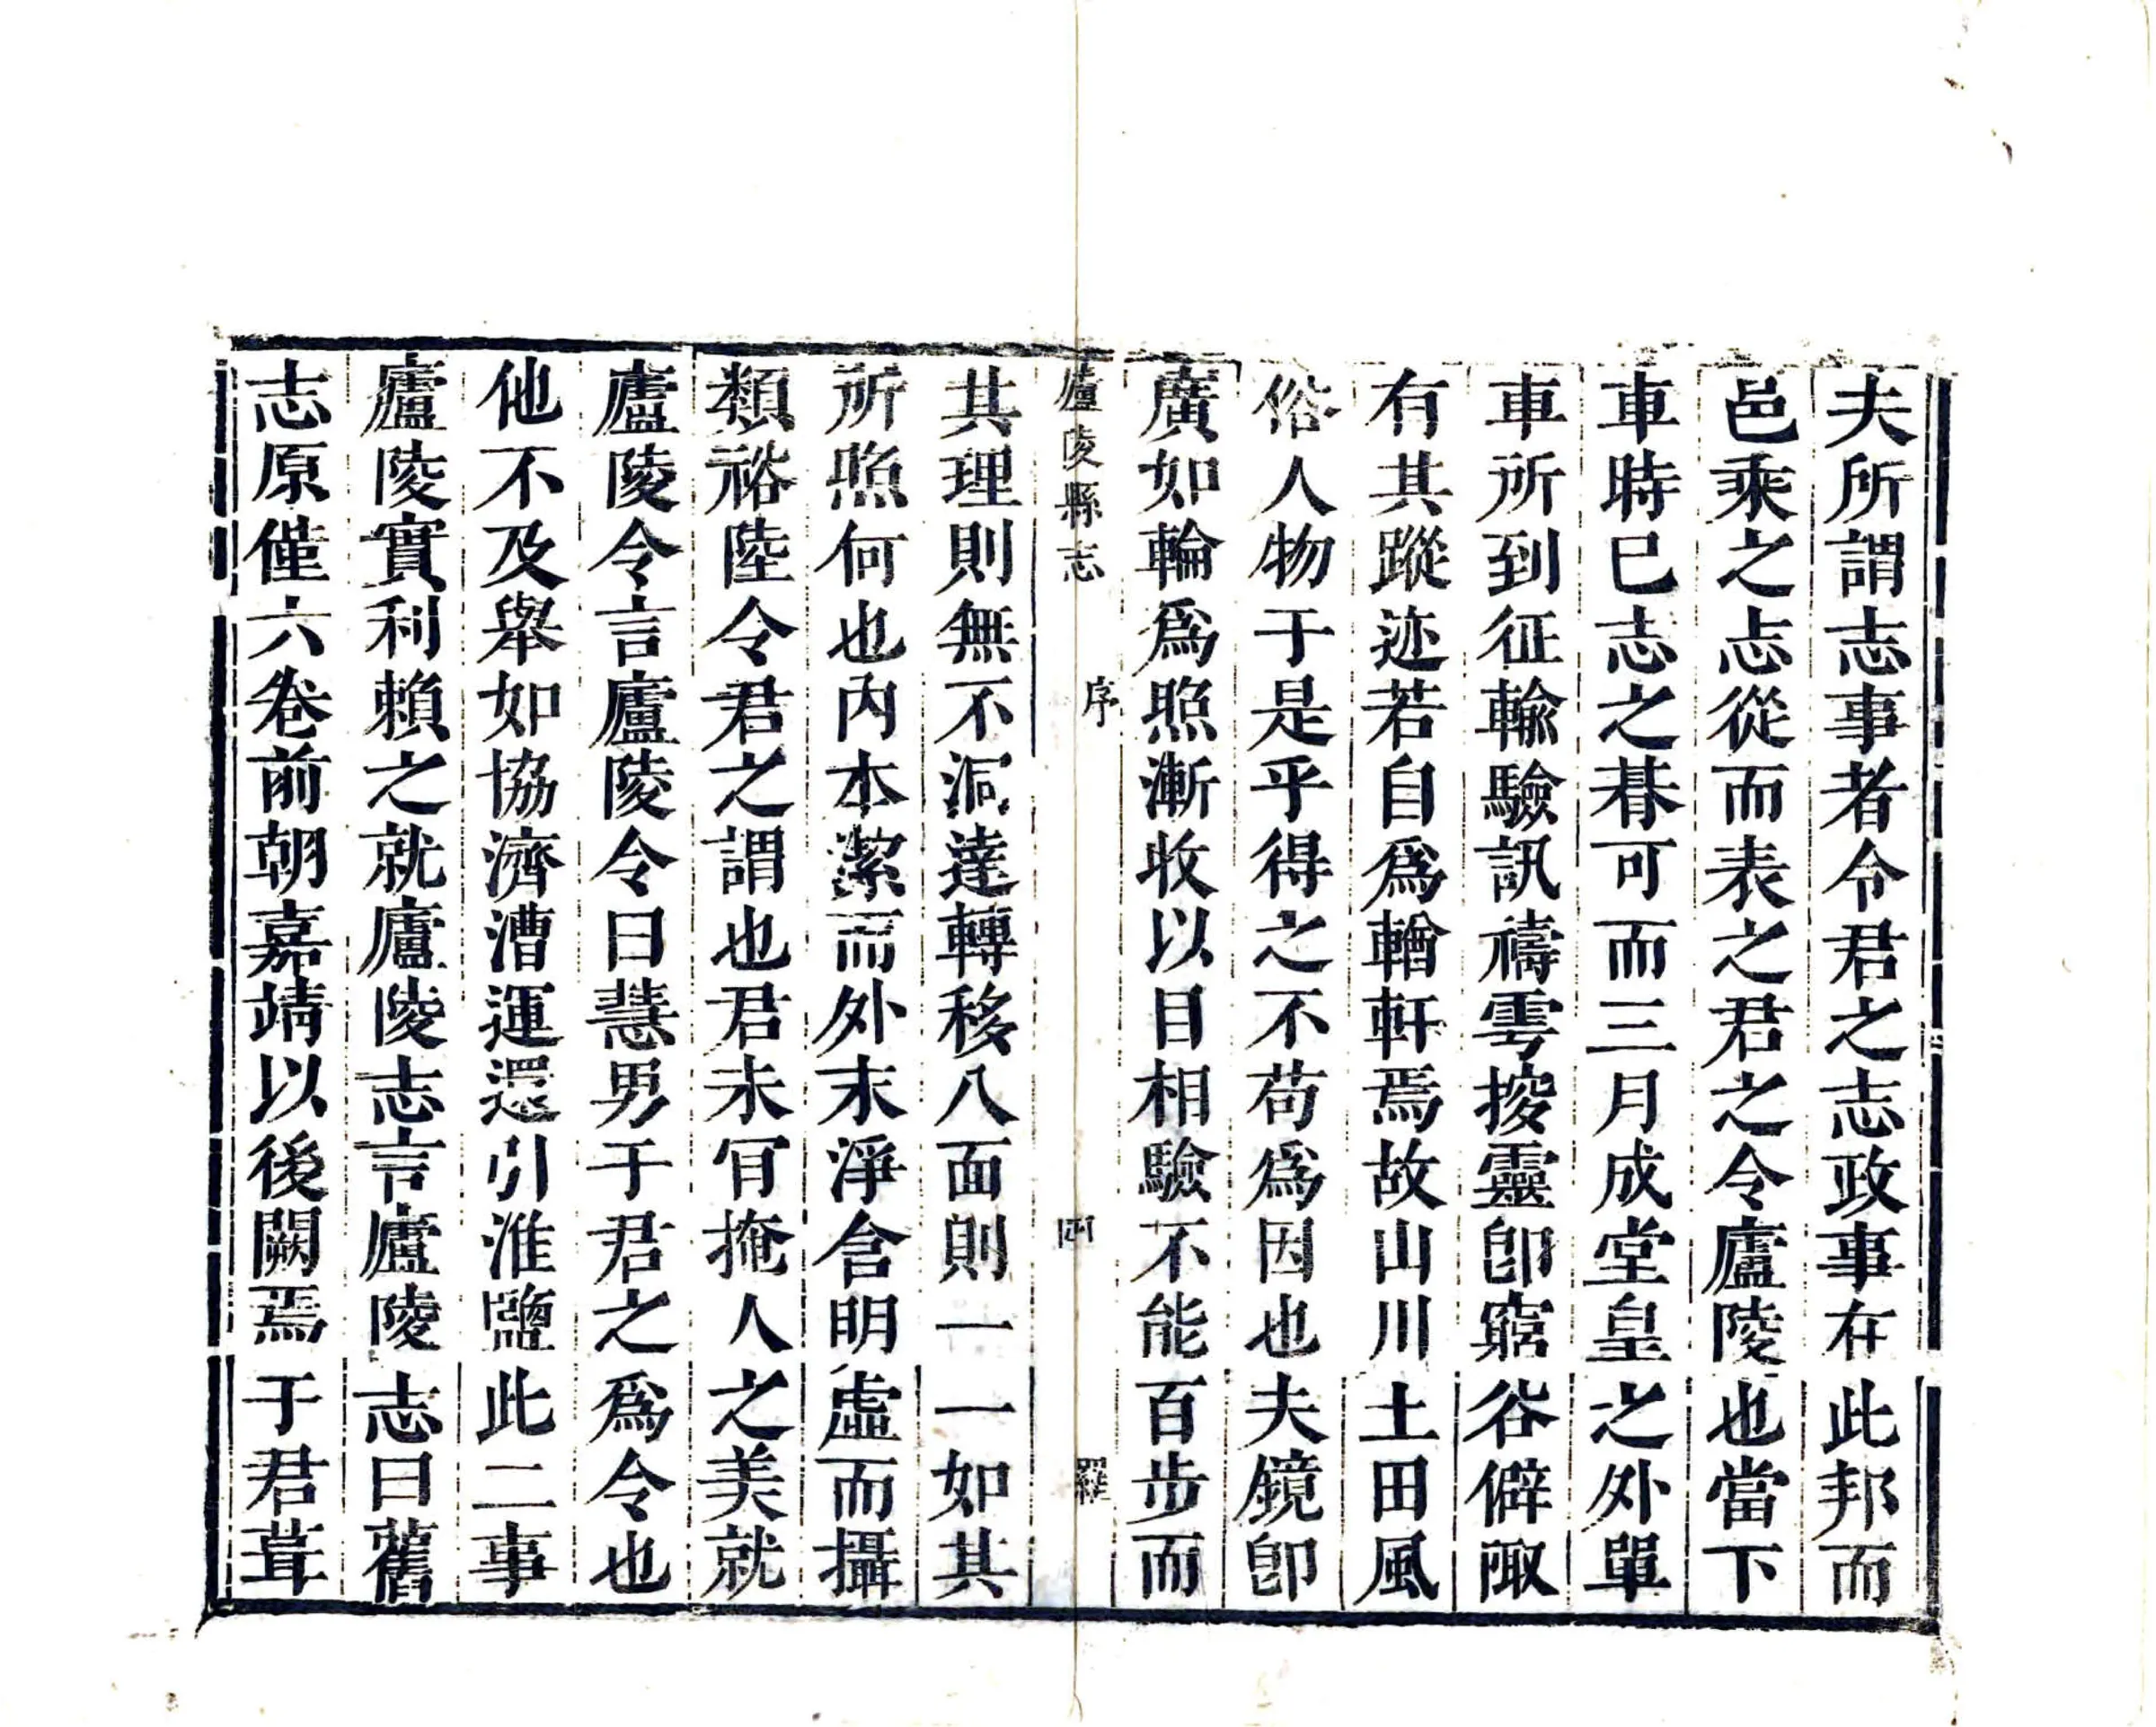 夫所謂志事者令君之志政事在此邦而
邑乘之志從而表之君之令廬陵也當下
車時已志之朞可而三月成堂皇之外單
車所到征輸驗訊禱雩按靈卽窮谷僻陬
有其蹤迹若自爲輶軒焉故山川土田風
俗人物于是乎得之不苟爲因也夫鏡卽
廣如輪爲照漸收以目相驗不能百步而
廬陵縣志
序
四
羅
其理則無不洞達轉移八面則一一如其
所照何也內本潔而外末淨含明虛而攝
類裕陸令君之謂也君未冐掩人之美就
廬陵令言廬陵令曰慧男于君之爲令也
他不及舉如協濟漕運還引淮鹽此二事
廬陵實利賴之就廬陵志言廬陵志曰舊
志原僅六卷前朝嘉靖以後闕焉于君葺